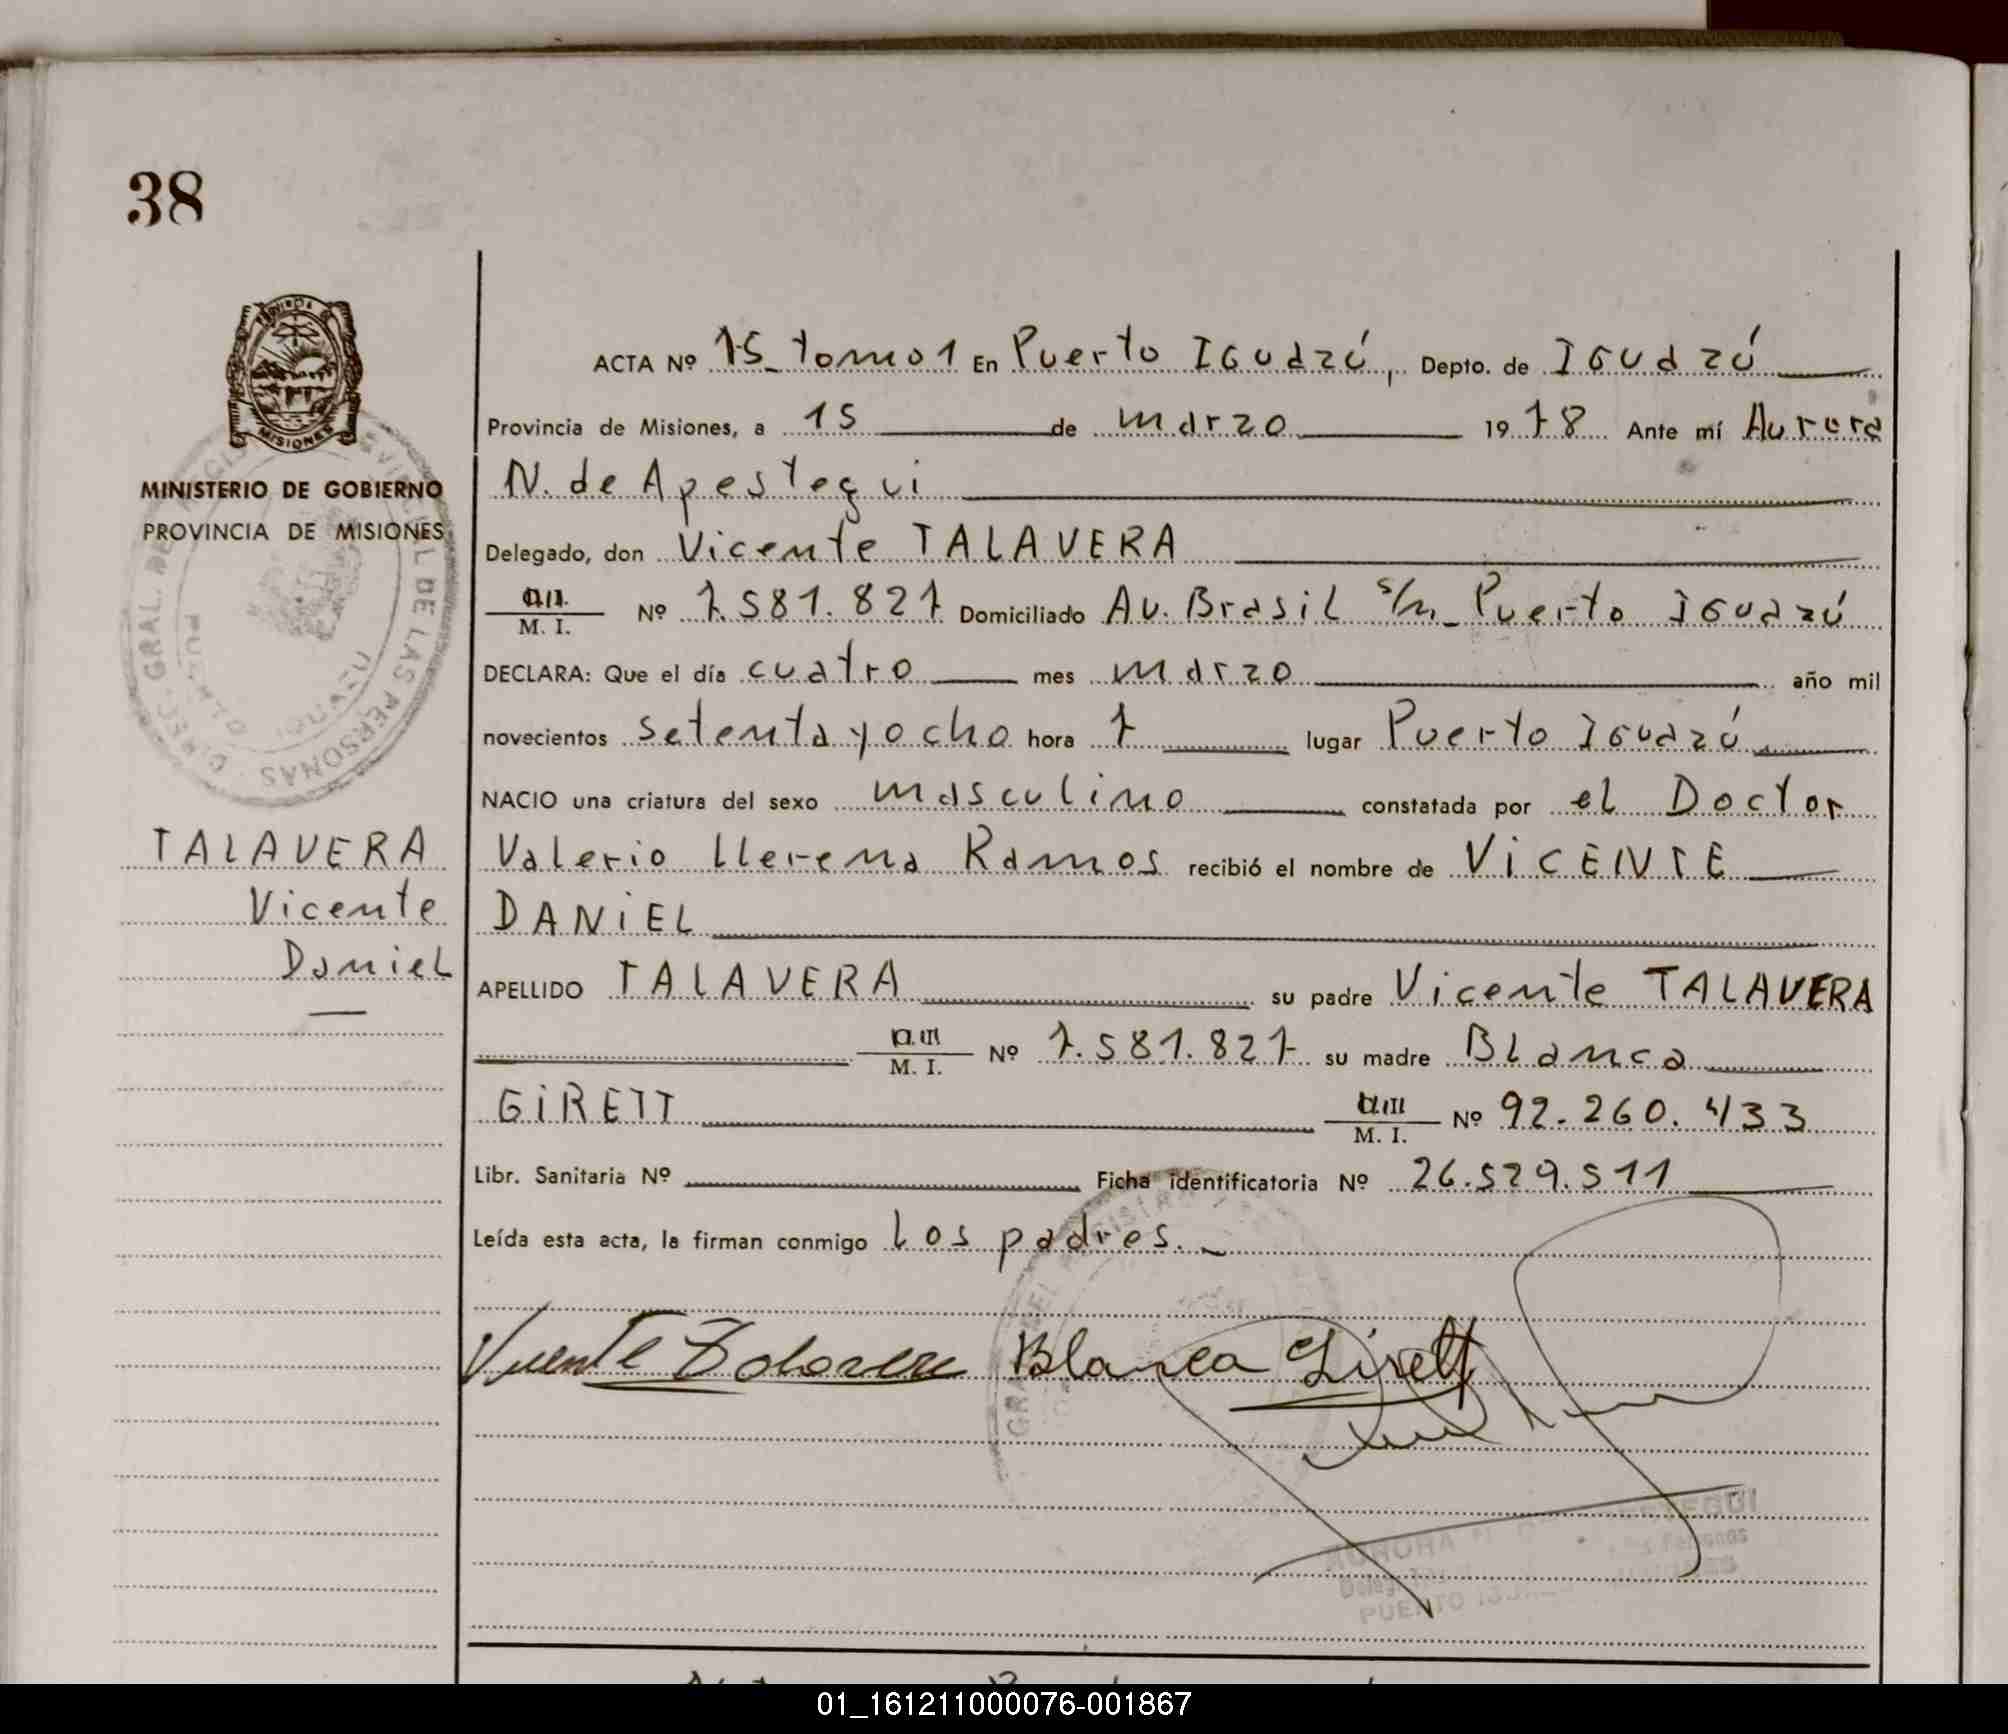 38
MISIONES
MINISTERIO DE GOBIERNO
PROVINCIA DE MISIONES
DIREC. GRAL. DE LAS PERSONAS
TALAVERA
Vicente
Daniel
ACTA Nº 15_ tomo 1 En Puerto Iguazú, Depto. de Iguazú
Provincia de Misiones, a 15 de marzo 1978 Ante mí Aurora
N. de Apestegui
Delegado, don Vicente TALAVERA
M. I. Nº 7.581.827 Domiciliado Av. Brasil s/n_ Puerto Iguazú
DECLARA: Que el día cuatro mes marzo año mil
novecientos setenta y ocho hora 7 lugar Puerto Iguazú
NACIO una criatura del sexo masculino constatada por el Doctor
Valerio Llerena Ramos recibió el nombre de VICENTE
DANIEL
APELLIDO TALAVERA su padre Vicente TALAVERA
M. I. Nº 7.581.827 su madre Blanca
GIRETT M. I. Nº 92.260.433
Libr. Sanitaria Nº Ficha identificatoria Nº 26.529.511
Leída esta acta, la firman conmigo los padres._
Vicente Talavera Blanca Girett
AURORA
PUERTO
01_161211000076-001867